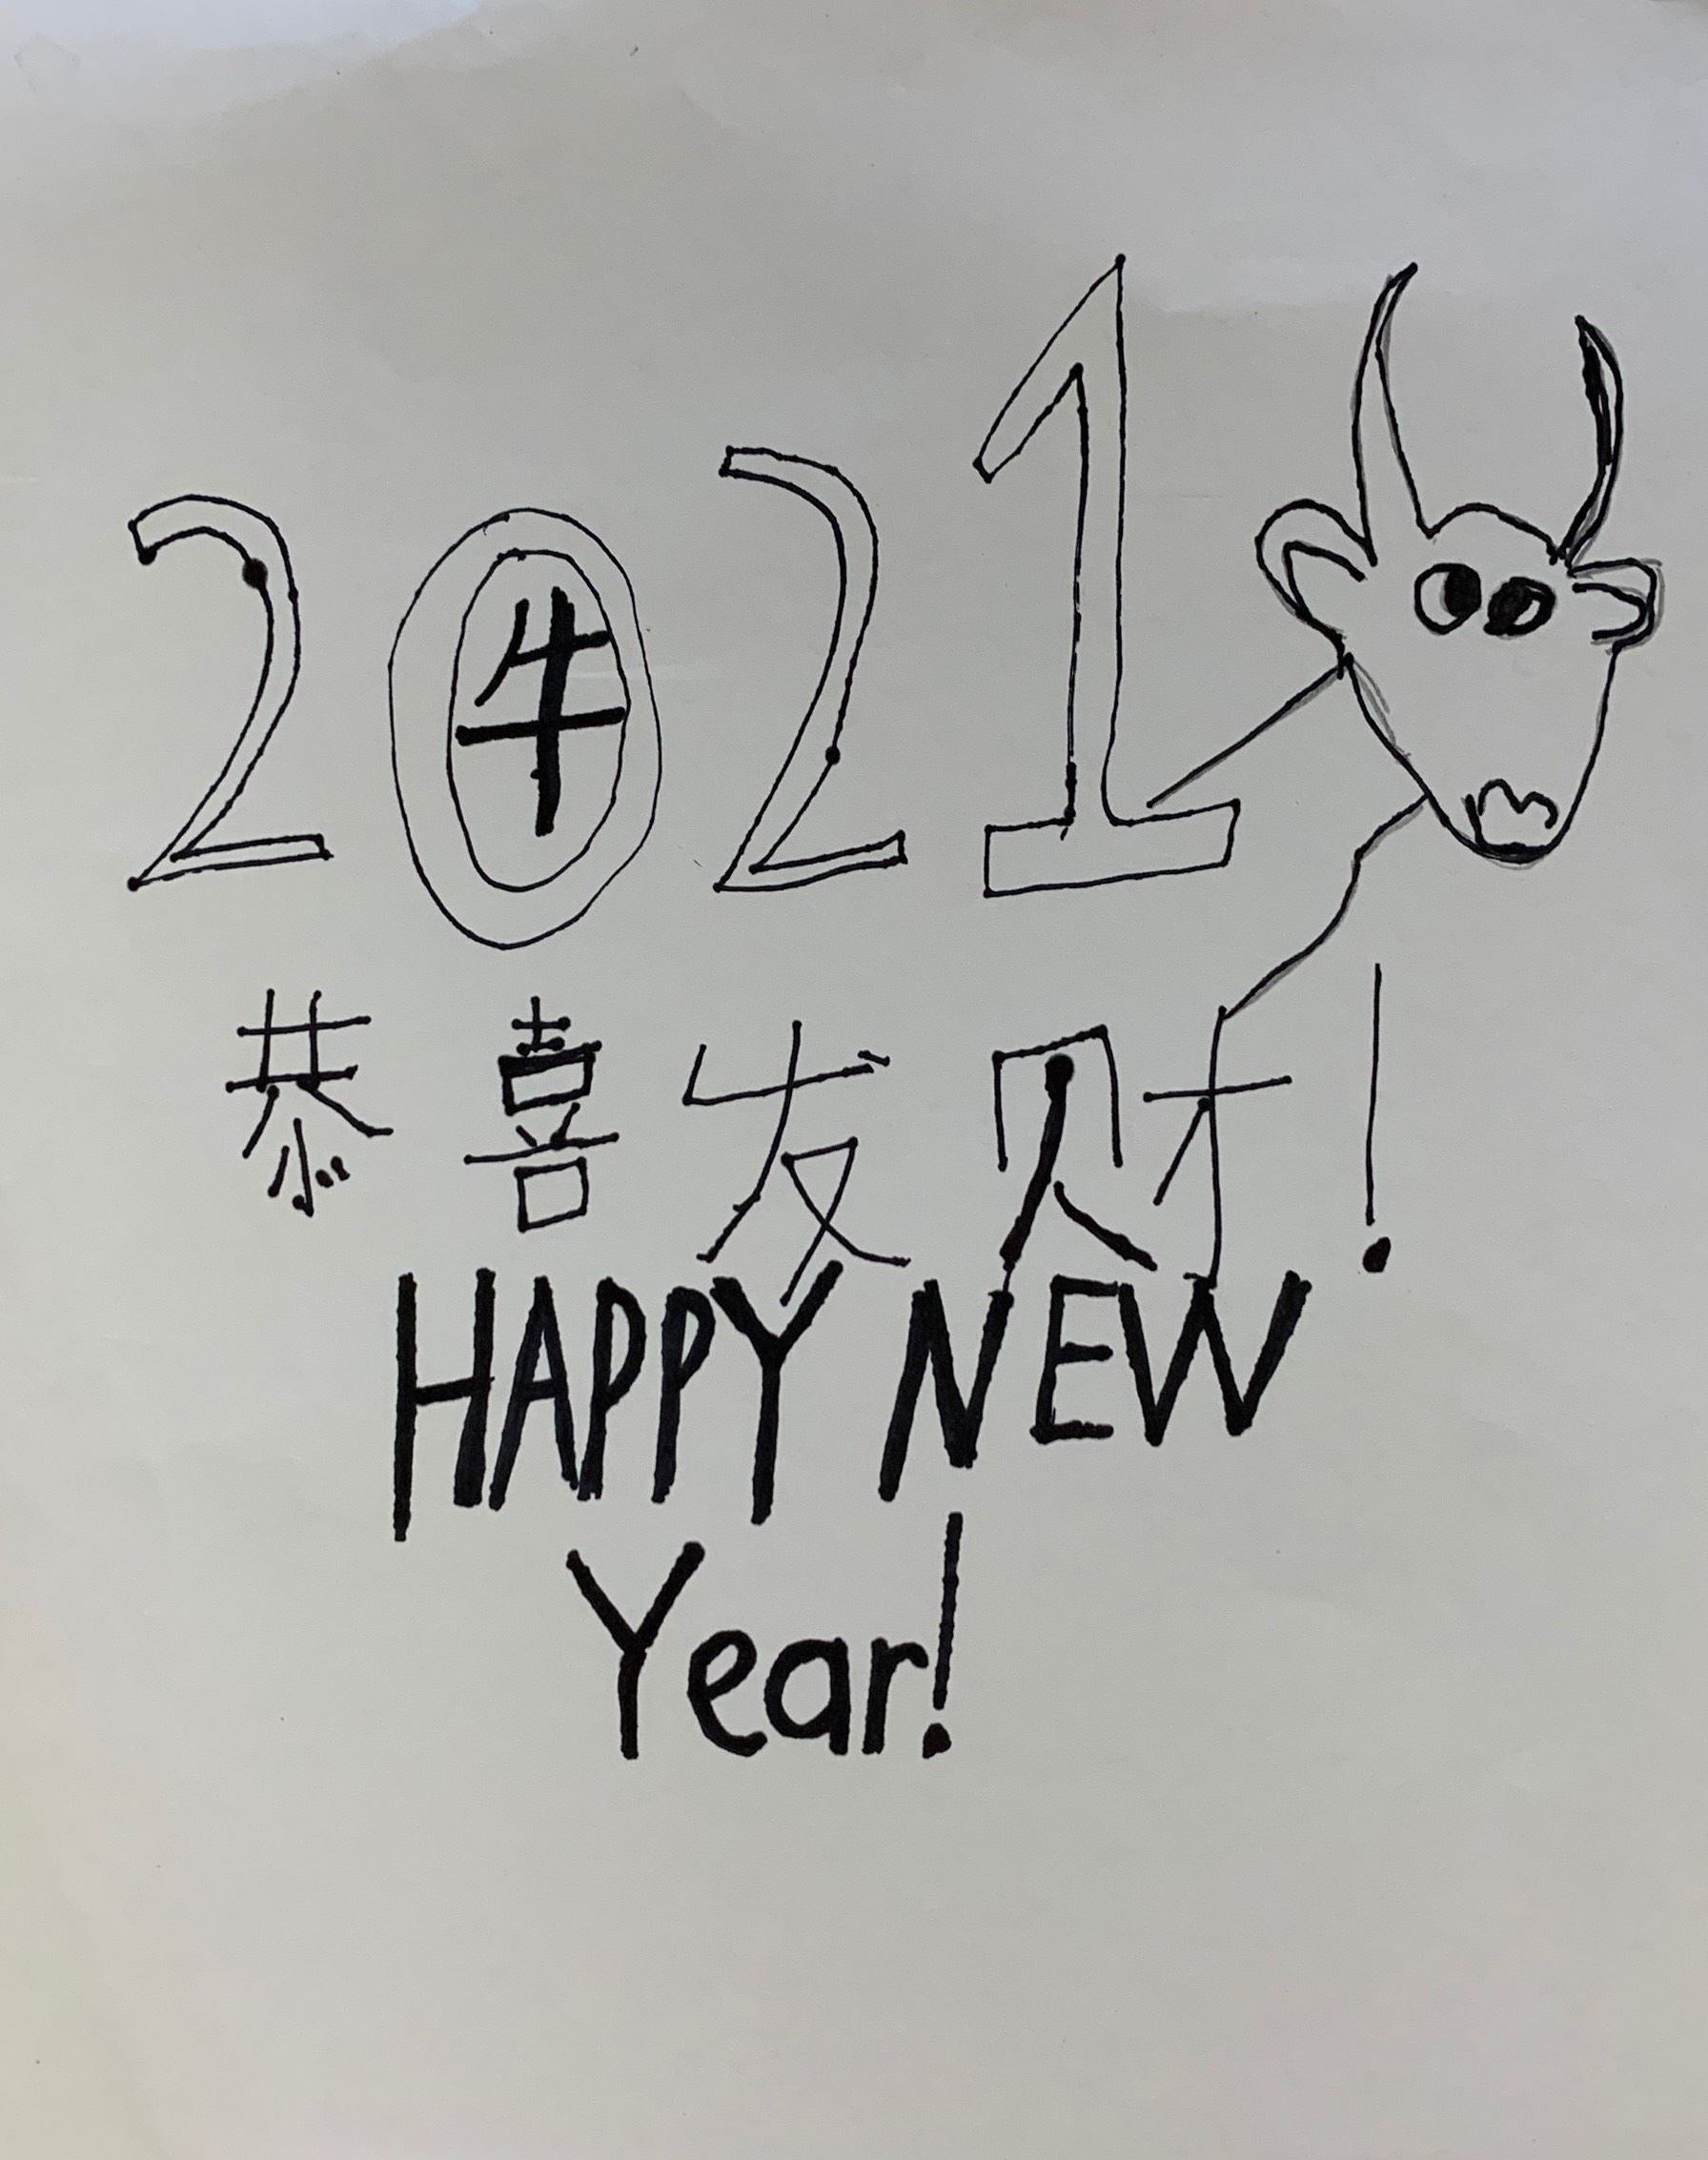 2021
牛
恭喜发财!
HAPPY NEW
Year!